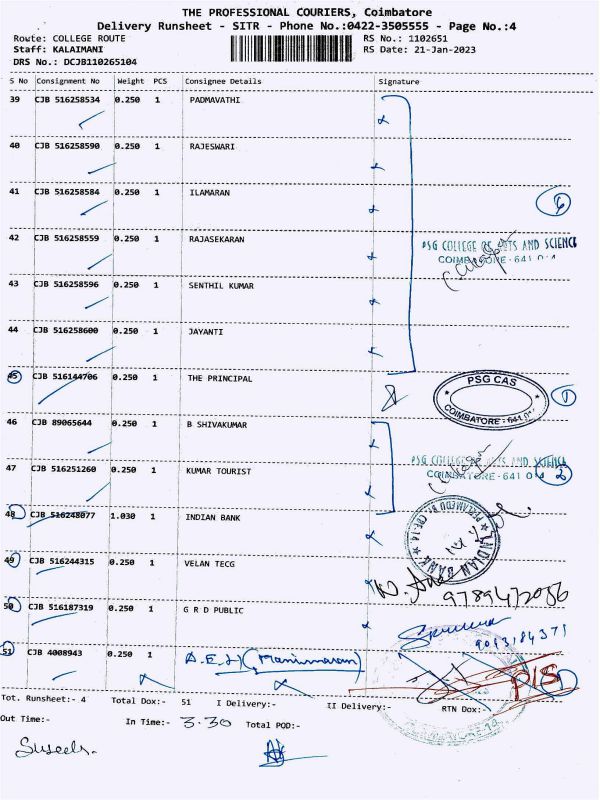 THE PROFESSIONAL COURIERS, Coimbatore
Delivery Runsheet - SITR - Phone No.:0422-3505555 - Page No.:4
Route: COLLEGE ROUTE RS No.: 1102651
Staff: KALAIMANI RS Date: 21-Jan-2023
DRS No.: DCJB110265104
S No Consignment No Weight PCS Consignee Details Signature
39 CJB 516258534 0.250 1 PADMAVATHI
40 CJB 516258590 0.250 1 RAJESWARI
41 CJB 516258584 0.250 1 ILAMARAN
6
42 CJB 516258559 0.250 1 RAJASEKARAN
PSG COLLEGE OF ARTS AND SCIENCE
COIMBATORE - 641 014
43 CJB 516258596 0.250 1 SENTHIL KUMAR
44 CJB 516258600 0.250 1 JAYANTI
45 CJB 516144706 0.250 1 THE PRINCIPAL
PSG CAS
COIMBATORE - 641 014
1
46 CJB 89065644 0.250 1 B SHIVAKUMAR
PSG COLLEGE OF ARTS AND SCIENCE
COIMBATORE - 641 014
2
47 CJB 516251260 0.250 1 KUMAR TOURIST
48 CJB 516248077 1.030 1 INDIAN BANK
INDIAN BANK
49 CJB 516244315 0.250 1 VELAN TECG
9789472086
50 CJB 516187319 0.250 1 G R D PUBLIC
9043184371
51 CJB 4008943 0.250 1 A.E.H (Manimaran)
P/S
Tot. Runsheet:- 4 Total Dox:- 51 I Delivery:- II Delivery:- RTN Dox:-
Out Time:- In Time:- 3.30 Total POD:-
Suseels.